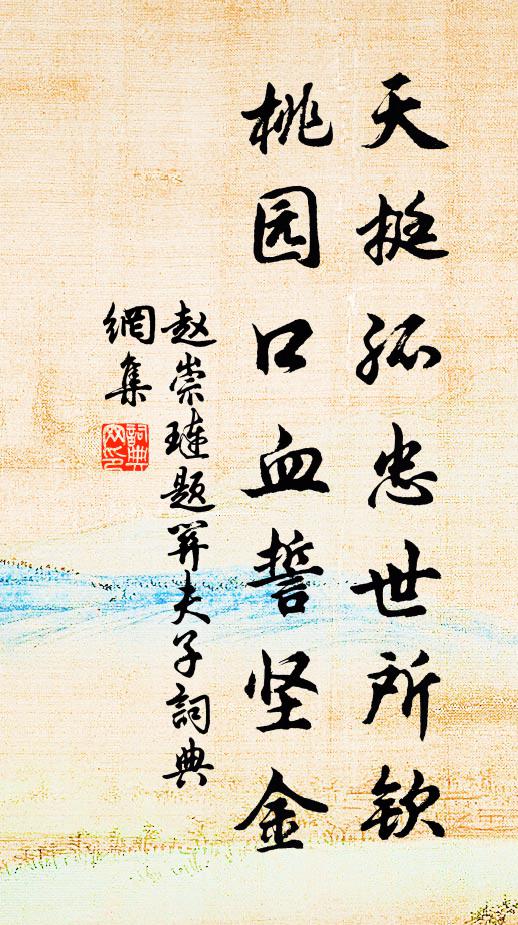 天挺孤忠世所钦
桃园口血誓坚金
赵崇琏题关夫子詞典
網集
詞典